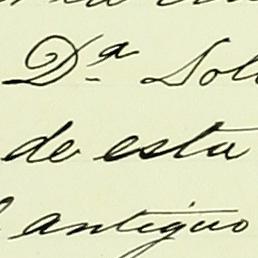 Dª Sol
de esta
antiguo